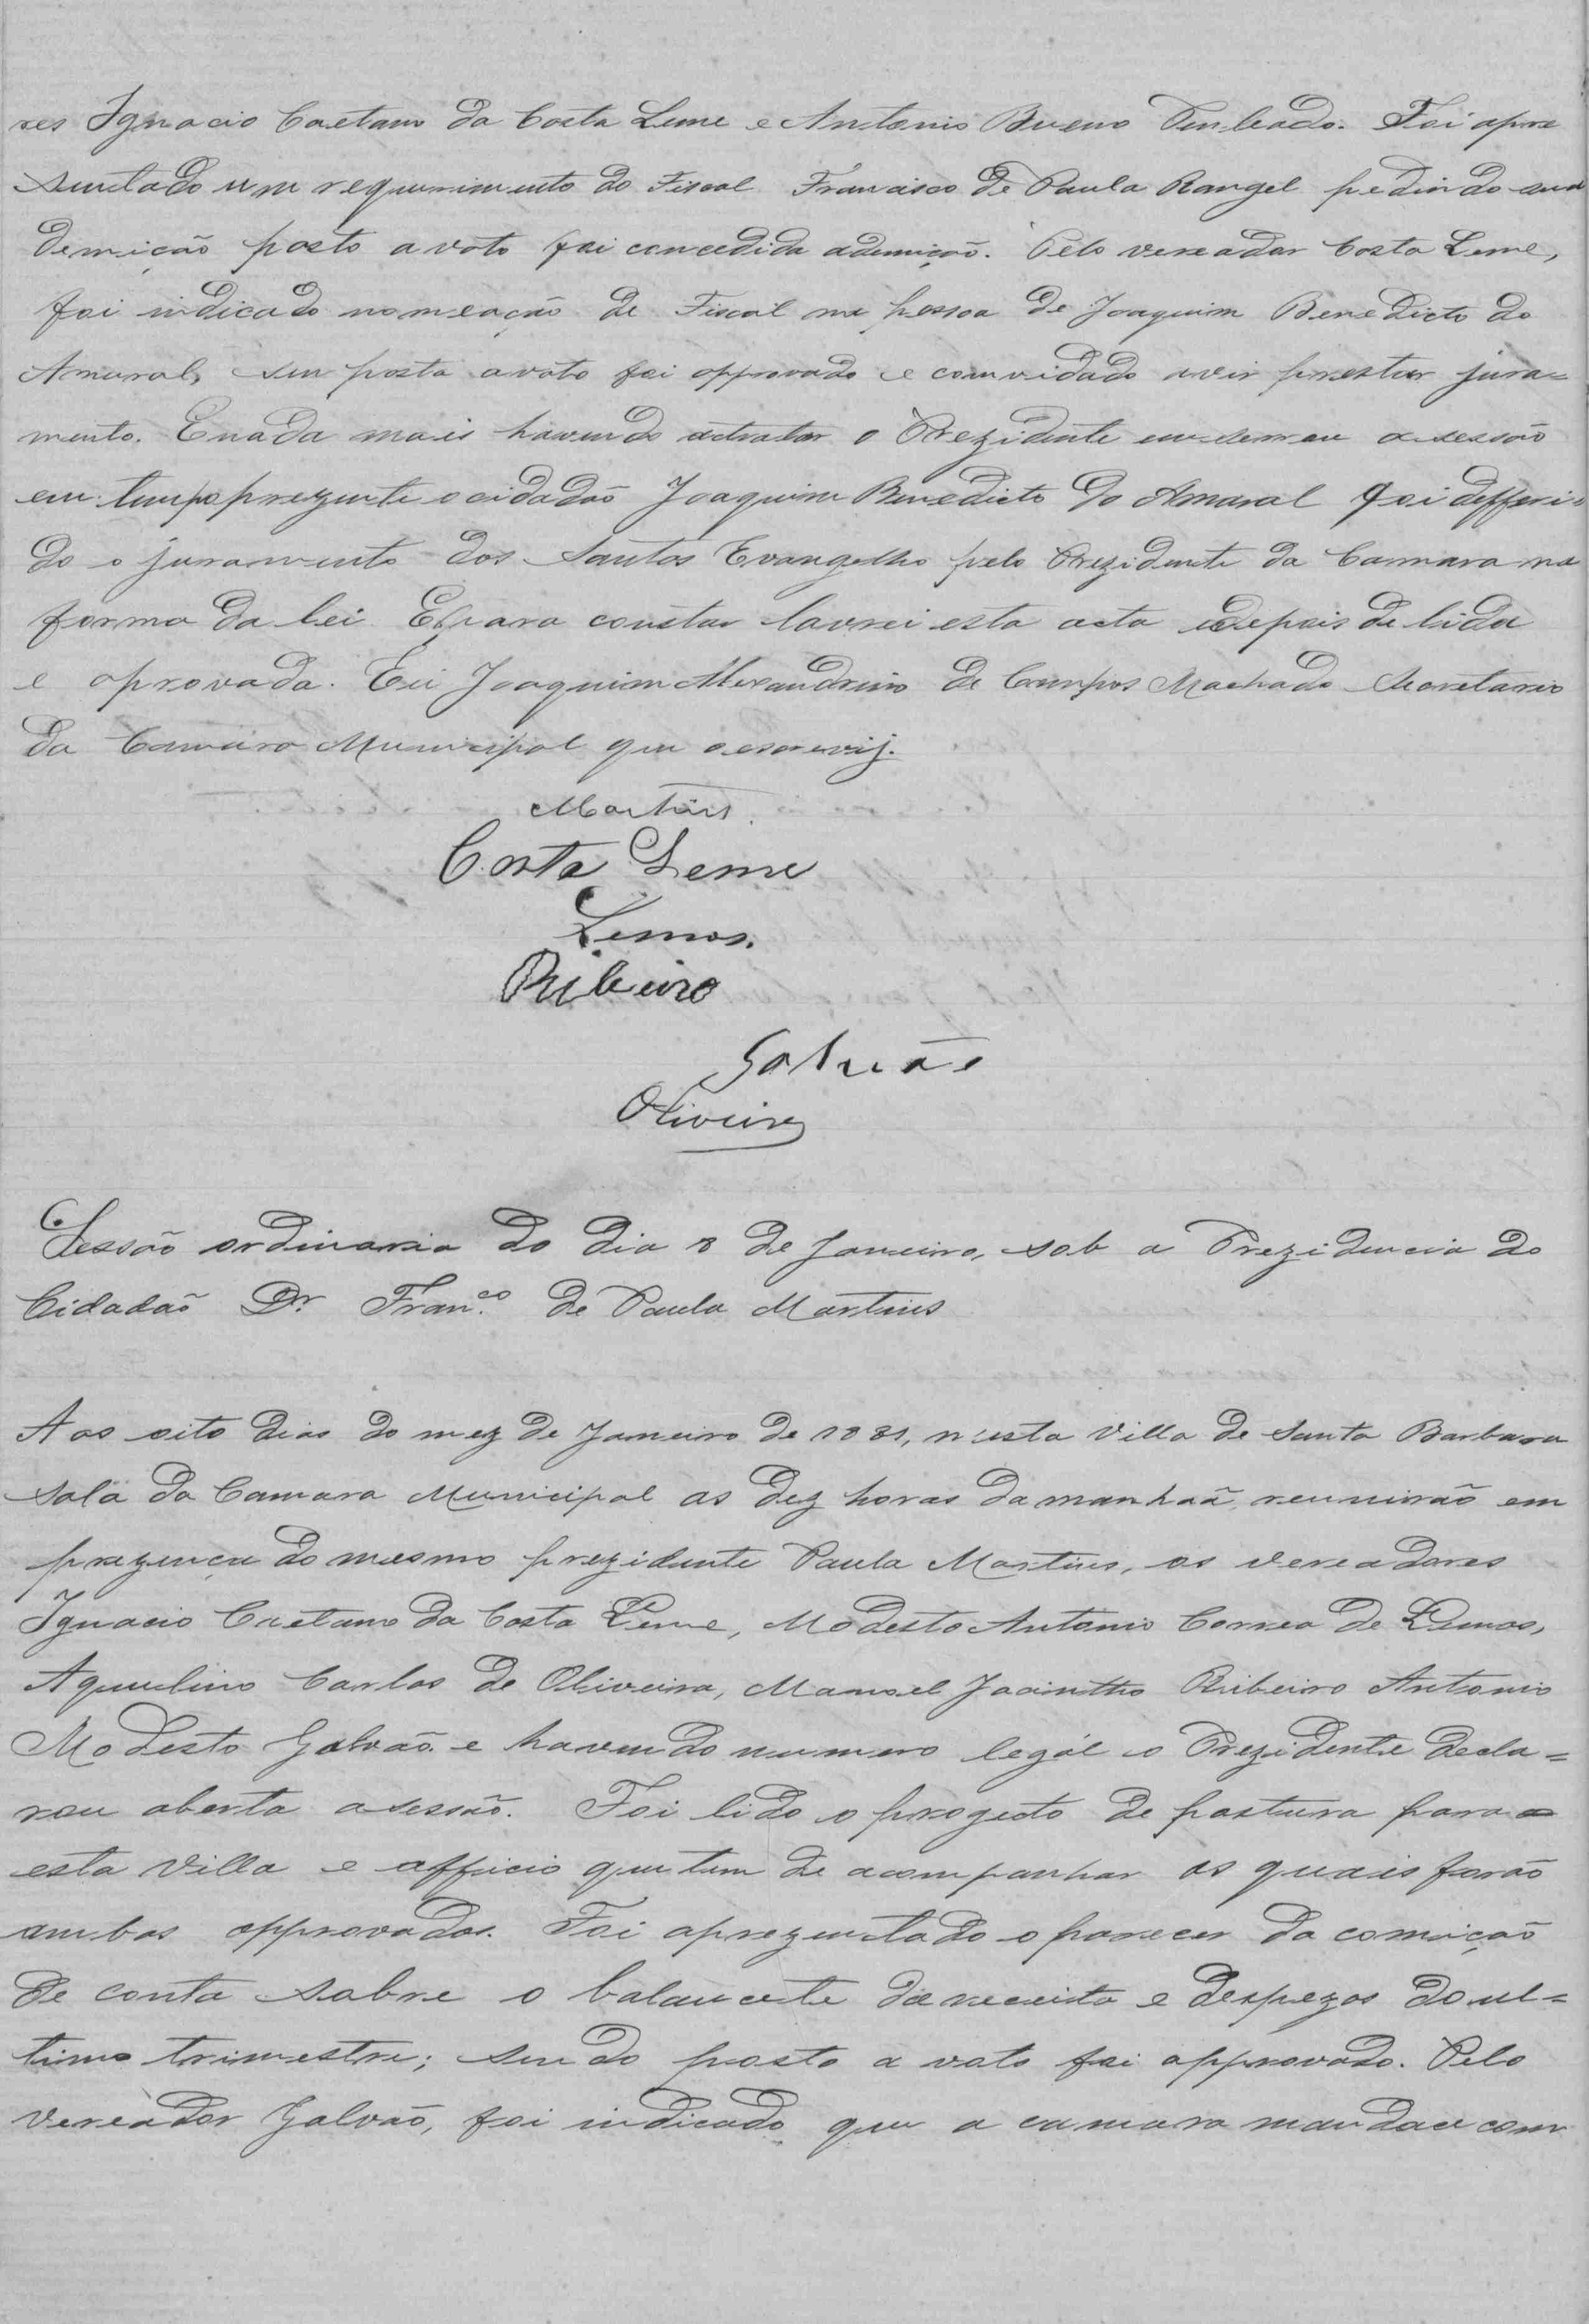 res Ignacio Caetano da Costa Leme e Antonio Bueno Penteado. Foi apre
sentado um requerimento do Fiscal Francisco de Paula Rangel pedindo sua
demição posto a voto foi concedida ademição. Pelo vereador Costa Leme,
foi indicado nomeação de Fiscal na pessoa de Joaquim Benedicto do
Amaral, sen posta avoto foi approvado e comvidado avir prestar jura=
mento. Enada mais havendo atratar o Prezidente enserrou a sessão
em tempo prezente o cidadão Joaquim Benedicto do Amaral foi defferi=
do o juramento dos Santos Evangelho pelo Prezidente da Camara na
forma da lei. Epara constar lavrei esta acta edepois de lida
e aprovada. Eu Joaquim Alexandrino de Campos Machado Secretario
da Camara Municipal que o escrevij.
Martins.
Costa Leme
Lemos.
Ribeiro
Galvão
Oliveira
Sessão ordinaria do dia 8 de Janeiro, sob a Prezidencia do
Cidadão Dr. Fran.co de Paula Martins
Aos oito dias do mez de Janeiro de 1881, nesta Villa de Santa Barbara
sala da Camara Municipal as dez horas damanhaã, reunirão em
prezença do mesmo prezidente Paula Martins, os vereadores
Ignacio Caetano da Costa Leme, Modesto Antonio Correa de Lemos,
Aquulino Carlos de Oliveira, Manoel Jacintho Ribeiro Antonio
Modesto Galvão. e havendo numero legal o Prezidente decla=
rou aberta asessão. Foi lido o progecto de postura para
esta Villa e officio quetem de acompanhar os quais forão
ambos approvados. Foi aprezentado o parecer da comição
de conta sobre o balancete da receita e despezas do ul=
timo trimestre; sendo posto a voto foi approvado. Pelo
vereador Galvão, foi indicado que a camara mandace com